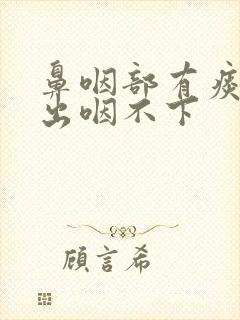 鼻咽部有痰
出咽不下
顧言希